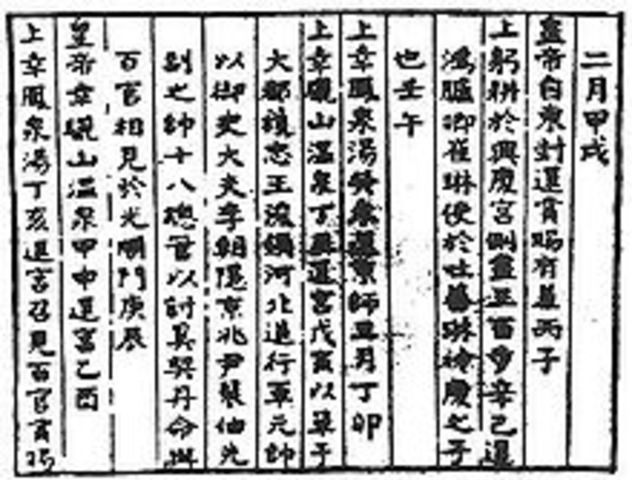 二月甲戌
皇帝自東封還賞賜有差丙子
上躬耕於興慶宮側盡三百步辛已還
鴻臚卿崔琳使於吐蕃琳神慶之子
也壬午
上幸鳳泉湯癸未還京師 月丁卯
上幸驪山溫泉丁 還宮戊寅以單于
大都護忠王浚領河北道行軍元帥
以御史大夫李朝隱京兆尹裴伷先
副之帥十八總管以討奚契丹命與
百官相見於光順門庚辰
皇帝幸驪山溫泉甲申還宮乙酉
上幸鳳泉湯丁亥還宮召見百官賞賜